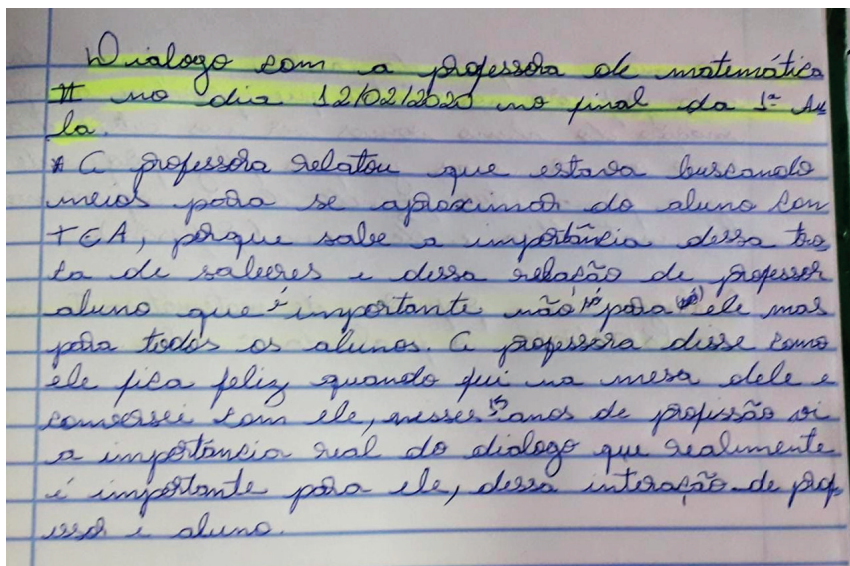 Dialogo com a professora de matemática
II no dia 12/02/2020 no final da 1ª Au
la.
* A professora relatou que estava buscando
meios para se aproximar do aluno com
TEA, porque sabe a importância dessa tro
ca de saberes e dessa relação de professor
aluno que é importante não só para (só) ele mas
para todos os alunos. A professora disse como
ele fica feliz quando fui na mesa dele e
conversei com ele, nesses 15 anos de profissão vi
a importância real do dialogo que realmente
é importante para ele, dessa interação de prof
essor e aluno.